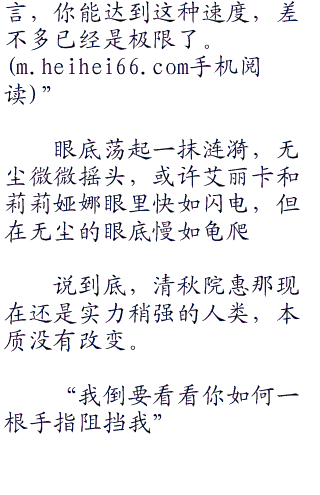 言，你能达到这种速度，差
不多已经是极限了。
(m.heihei66.com手机阅
读)”
眼底荡起一抹涟漪，无
尘微微摇头，或许艾丽卡和
莉莉娅娜眼里快如闪电，但
在无尘的眼底慢如龟爬
说到底，清秋院惠那现
在还是实力稍强的人类，本
质没有改变。
“我倒要看看你如何一
根手指阻挡我”